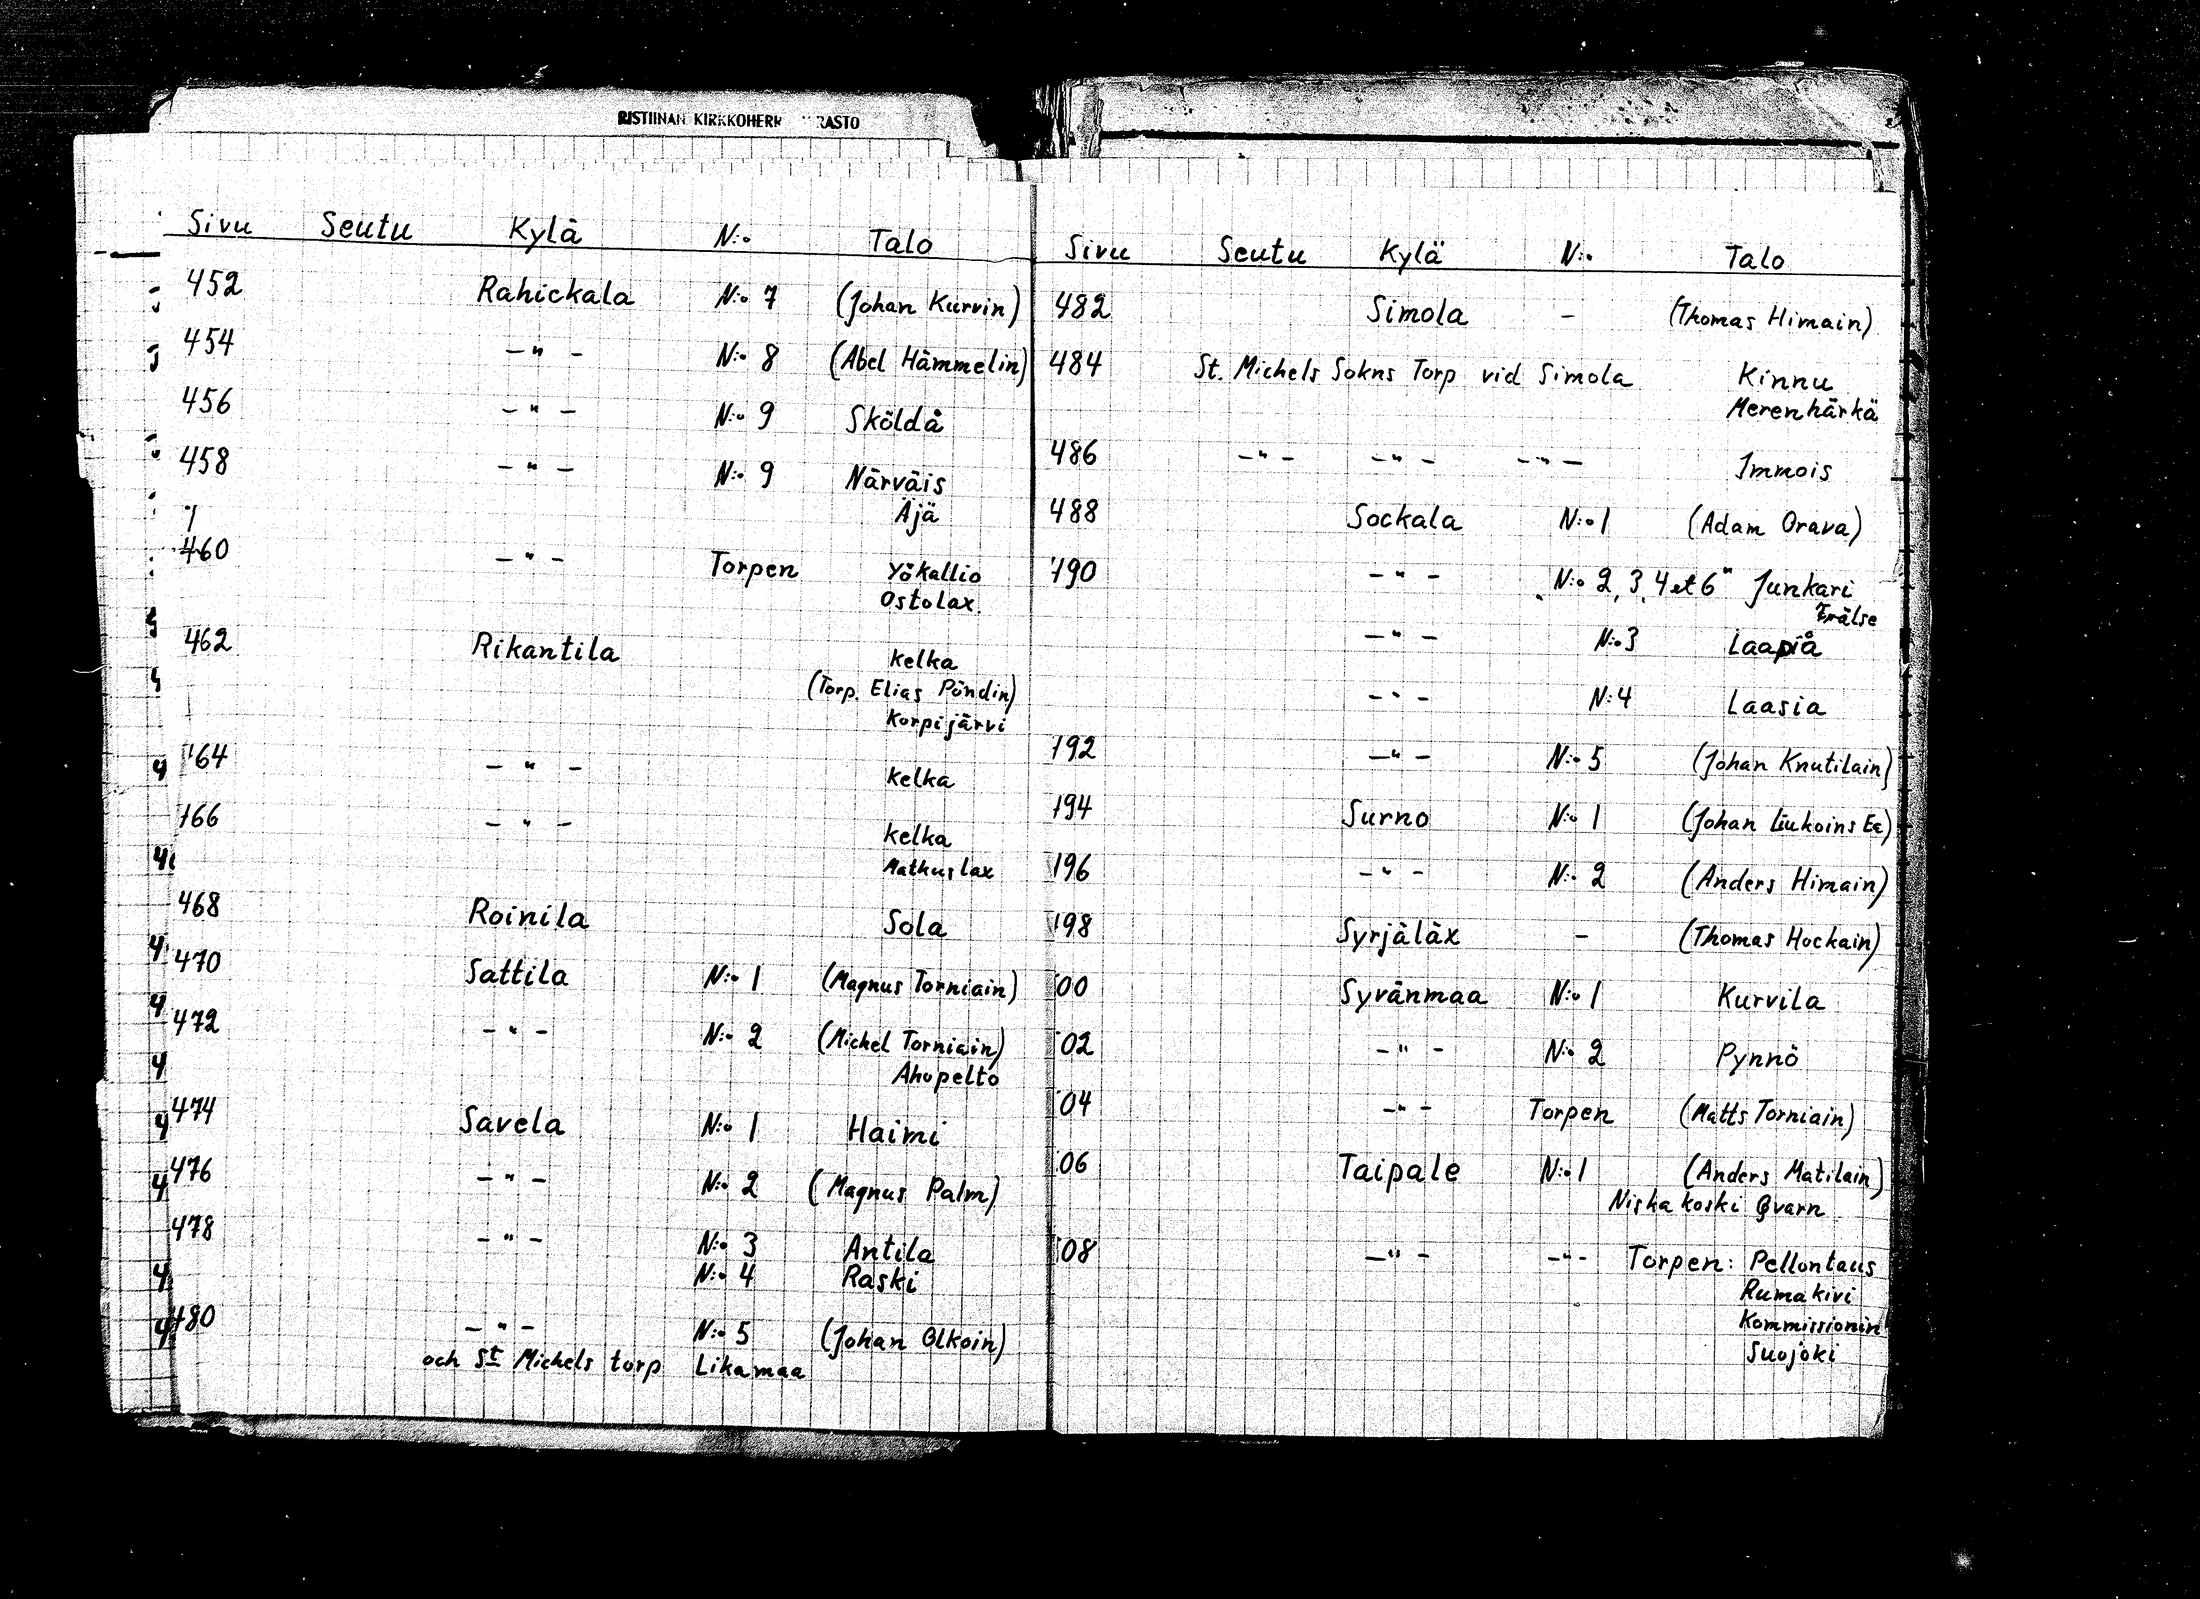 RISTIINAN KIRKKOHERR RASTO
Sivu Seutu Kylä N:o Talo
452 Rahickala N:o 7 (Johan Kurvin)
454 — " — N:o 8 (Abel Hämmelin)
456 — " — N:o 9 Sköldå
458 — " — N:o 9 Närväis
Äjä
460 — " — Torpen Yökallio
Ostolax.
462 Rikantila Kelka
(Torp. Elias Pöndin)
Korpijärvi
464 — " — Kelka
466 — " — Kelka
Mathuslax
468 Roinila Sola
470 Sattila N:o 1 (Magnus Torniain)
472 — " — N:o 2 (Michel Torniain)
Ahopelto
474 Savela N:o 1 Haimi
476 — " — N:o 2 (Magnus Palm)
478 — " — N:o 3 Antila
N:o 4 Raski
480 — " — N:o 5 (Johan Olkoin)
och St Michels torp Likamaa
Sivu Seutu Kylä N:o Talo
482 Simola — (Thomas Himain)
484 St. Michels Sokns Torp vid Simola Kinnu
Merenhärkä
486 — " — — " — — " — Immois
488 Sockala N:o 1 (Adam Orava)
490 — " — N:o 2, 3, 4 et 6 " Junkari
Frälse
— " — N:o 3 Laapiå
— " — N:4 Laasia
492 — " — N:o 5 (Johan Knutilain)
494 Surno N:o 1 (Johan Liukoins Ee)
496 — " — N:o 2 (Anders Himain)
498 Syrjäläx — (Thomas Hockain)
00 Syvänmaa N:o 1 Kurvila
02 — " — N:o 2 Pynnö
04 — " — Torpen (Matts Torniain)
06 Taipale N:o 1 (Anders Matilain)
Niskakoski Qvarn
08 — " — — " — Torpen: Pellontaus
Rumakivi
Kommissionin
Suojoki